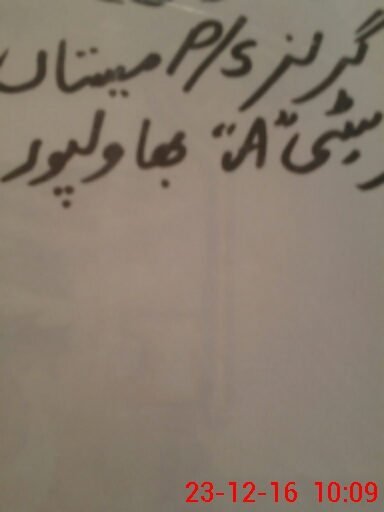 گرلز P/S میتلاں
سٹی "A" بھاولپور
23-12-16 10:09